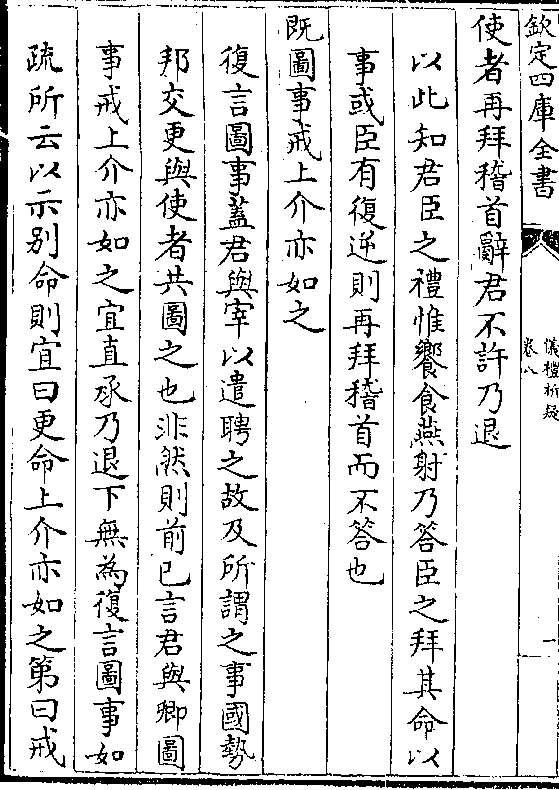 欽定四庫全書
儀禮析疑
卷八
一
使者再拜稽首辭君不許乃退
以此知君臣之禮惟饗食燕射乃答臣之拜其命以
事或臣有復逆則再拜稽首而不答也
既圖事戒上介亦如之
復言圖事蓋君與宰以遣聘之故及所謂之事國勢
邦交更與使者共圖之也非然則前已言君與卿圖
事戒上介亦如之宜直承乃退下無為復言圖事如
疏所云以示别命則宜曰更命上介亦如之第曰戒